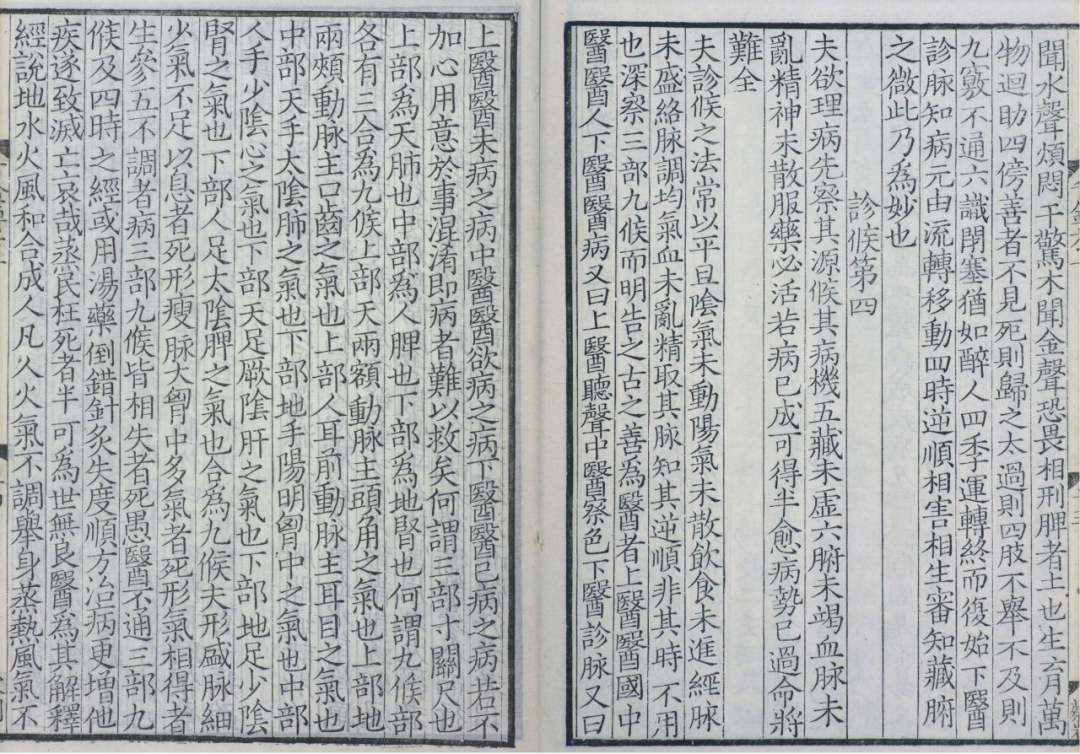 聞水聲煩悶干驚木聞金聲恐畏相刑脾者土也生六月萬
物迴助四傍善者不見死則歸之太過則四肢不舉不及則
九竅不通六識閉塞猶如醉人四季運轉終而復始下醫
診脉知病元由流轉移動四時逆順相害相生審知藏腑
之微此乃為妙也
診候第四
夫欲理病先察其源候其病機五藏未虛六腑未竭血脉未
亂精神未散服藥必活若病已成可得半愈病勢已過命將
難全
夫診候之法常以平旦陰氣未動陽氣未散飲食未進經脉
未盛絡脉調均氣血未亂精取其脉知其逆順非其時不用
也深察三部九候而明告之古之善為醫者上醫醫國中
醫醫人下醫醫病又曰上醫聽聲中醫察色下醫診脉又曰
上醫醫未病之病中醫醫欲病之病下醫醫已病之病若不
加心用意於事混淆即病者難以救矣何謂三部寸關尺也
上部為天肺也中部為人脾也下部為地腎也何謂九候部
各有三合為九候上部天兩額動脉主頭角之氣也上部地
兩頰動脉主口齒之氣也上部人耳前動脉主耳目之氣也
中部天手太陰肺之氣也中部地手陽明胷中之氣也中部
人手少陰心之氣也下部天足厥陰肝之氣也下部地足少陰
腎之氣也下部人足太陰脾之氣也合為九候夫形盛脉細
少氣不足以息者死形瘦脉大胷中多氣者死形氣相得者
生參五不調者病三部九候皆相失者死愚醫不通三部九
候及四時之經或用湯藥倒錯針灸失度順方治病更增他
疾遂致滅亡哀哉蒸民枉死者半可為世無良醫為其解釋
經說地水火風和合成人凡人火氣不調舉身蒸熱風氣不